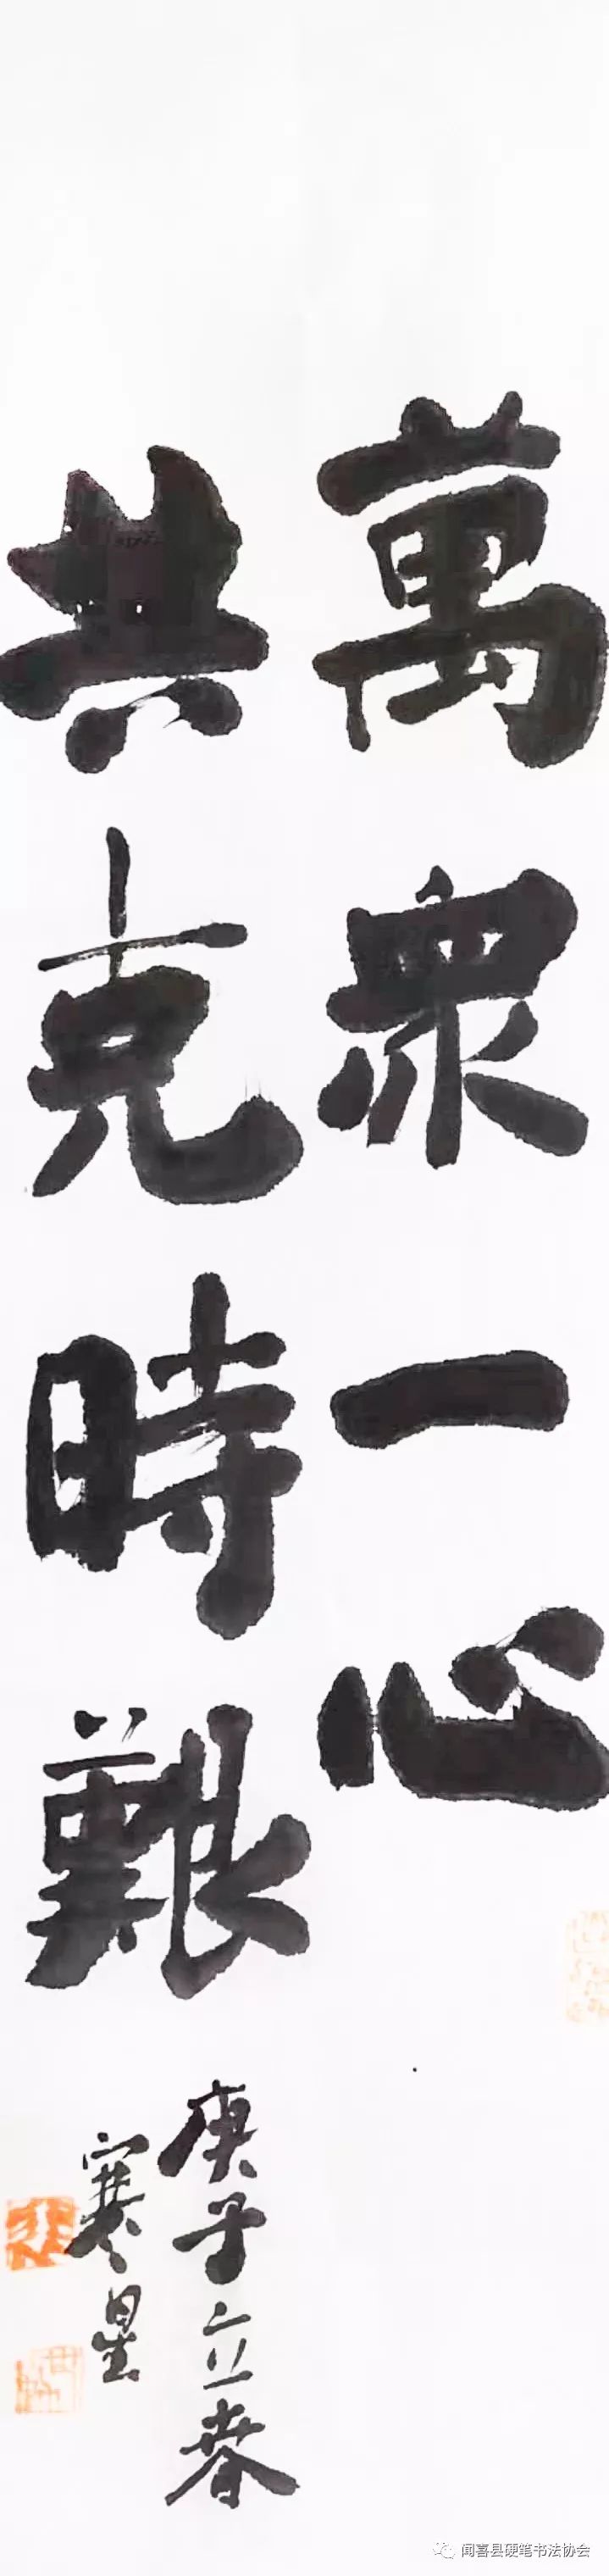 萬眾一心
共克時艱
庚子立春
寒星
闻喜县硬笔书法协会